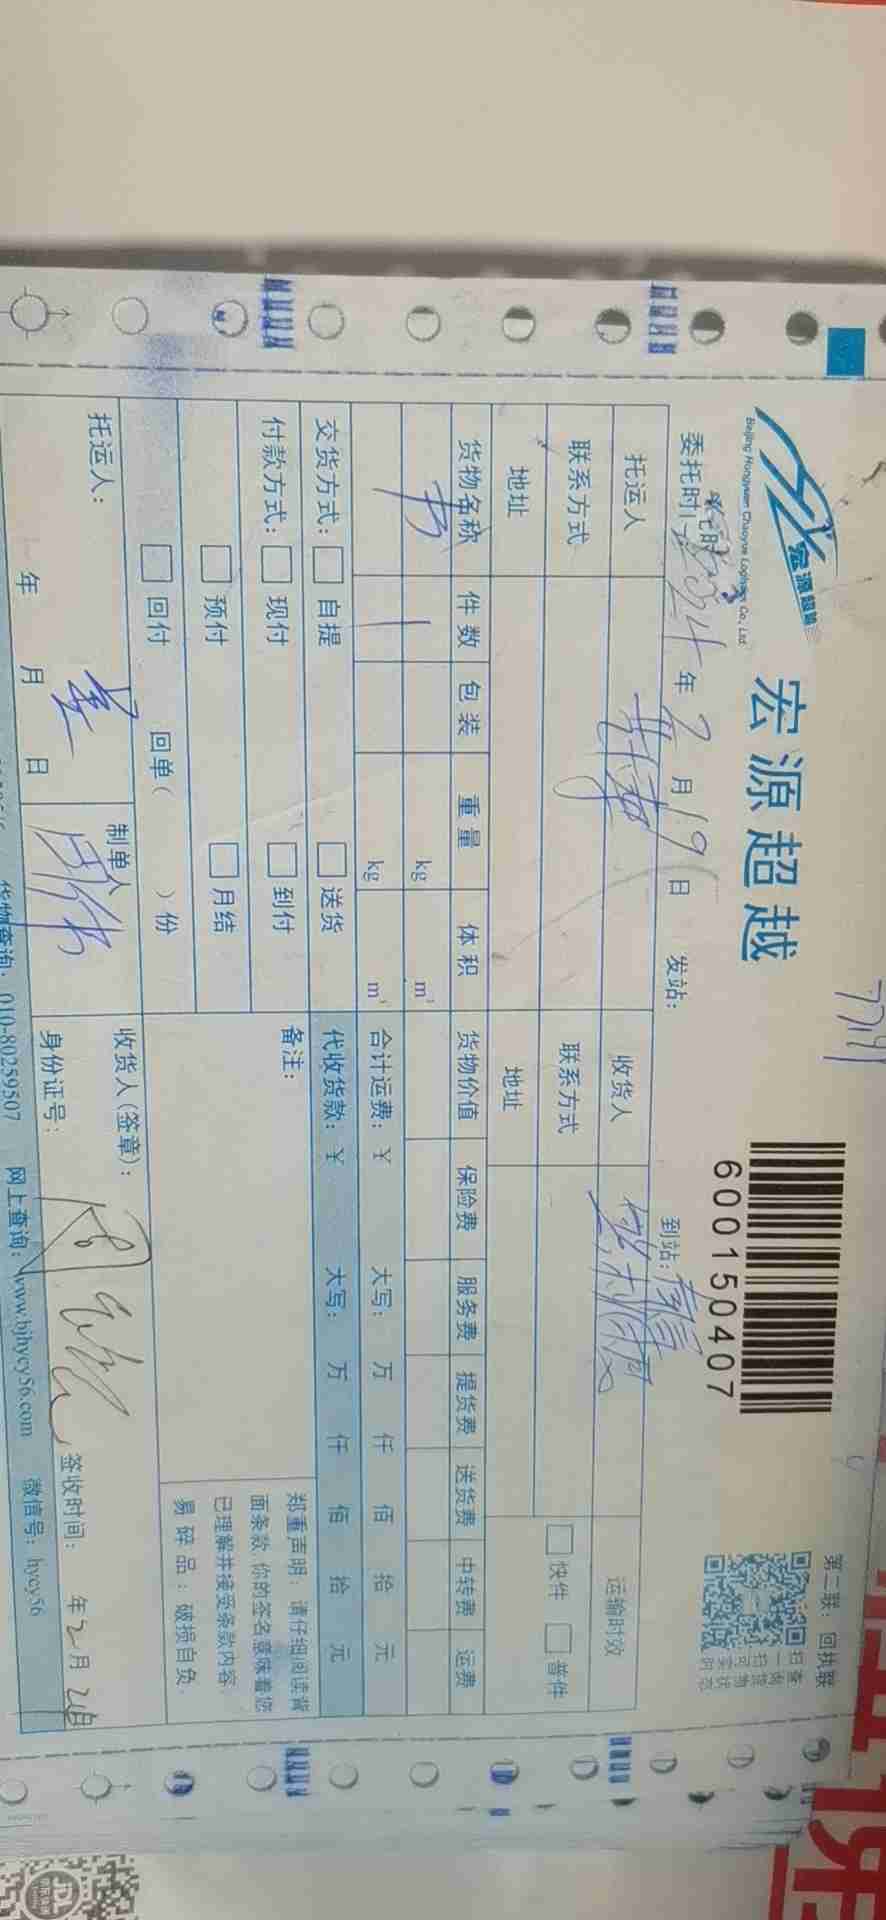 7719
宏源超越
Beijing Hongyuan Chaoyue Logistics Co., Ltd.
宏源超越
600150407
第二联：回执联
扫一扫可实时
查询货物状态
委托时 2024年2月19日 发站： 到站：
托运人 收货人 运输时效
联系方式 联系方式 快件 普件
地址 地址
货物名称 件数 包装 重量 体积 货物价值 保险费 服务费 提货费 送货费 中转费 运费
书 1 kg m³
kg m³ 合计运费：¥ 大写： 万 仟 佰 拾 元
交货方式： 自提 送货 代收货款：¥ 大写： 万 仟 佰 拾 元
付款方式： 现付 到付 备注：
预付 月结
回付 回单（ ）份
郑重声明：请仔细阅读背
面条款，你的签名意味着您
已理解并接受条款内容。
易碎品：破损自负。
托运人： 制单人 收货人（签章）：
身份证号：
年 月 日 签收时间： 年2月21日
货物查询：010-80259507 网上查询：www.bjhycy56.com 微信号：hycy56